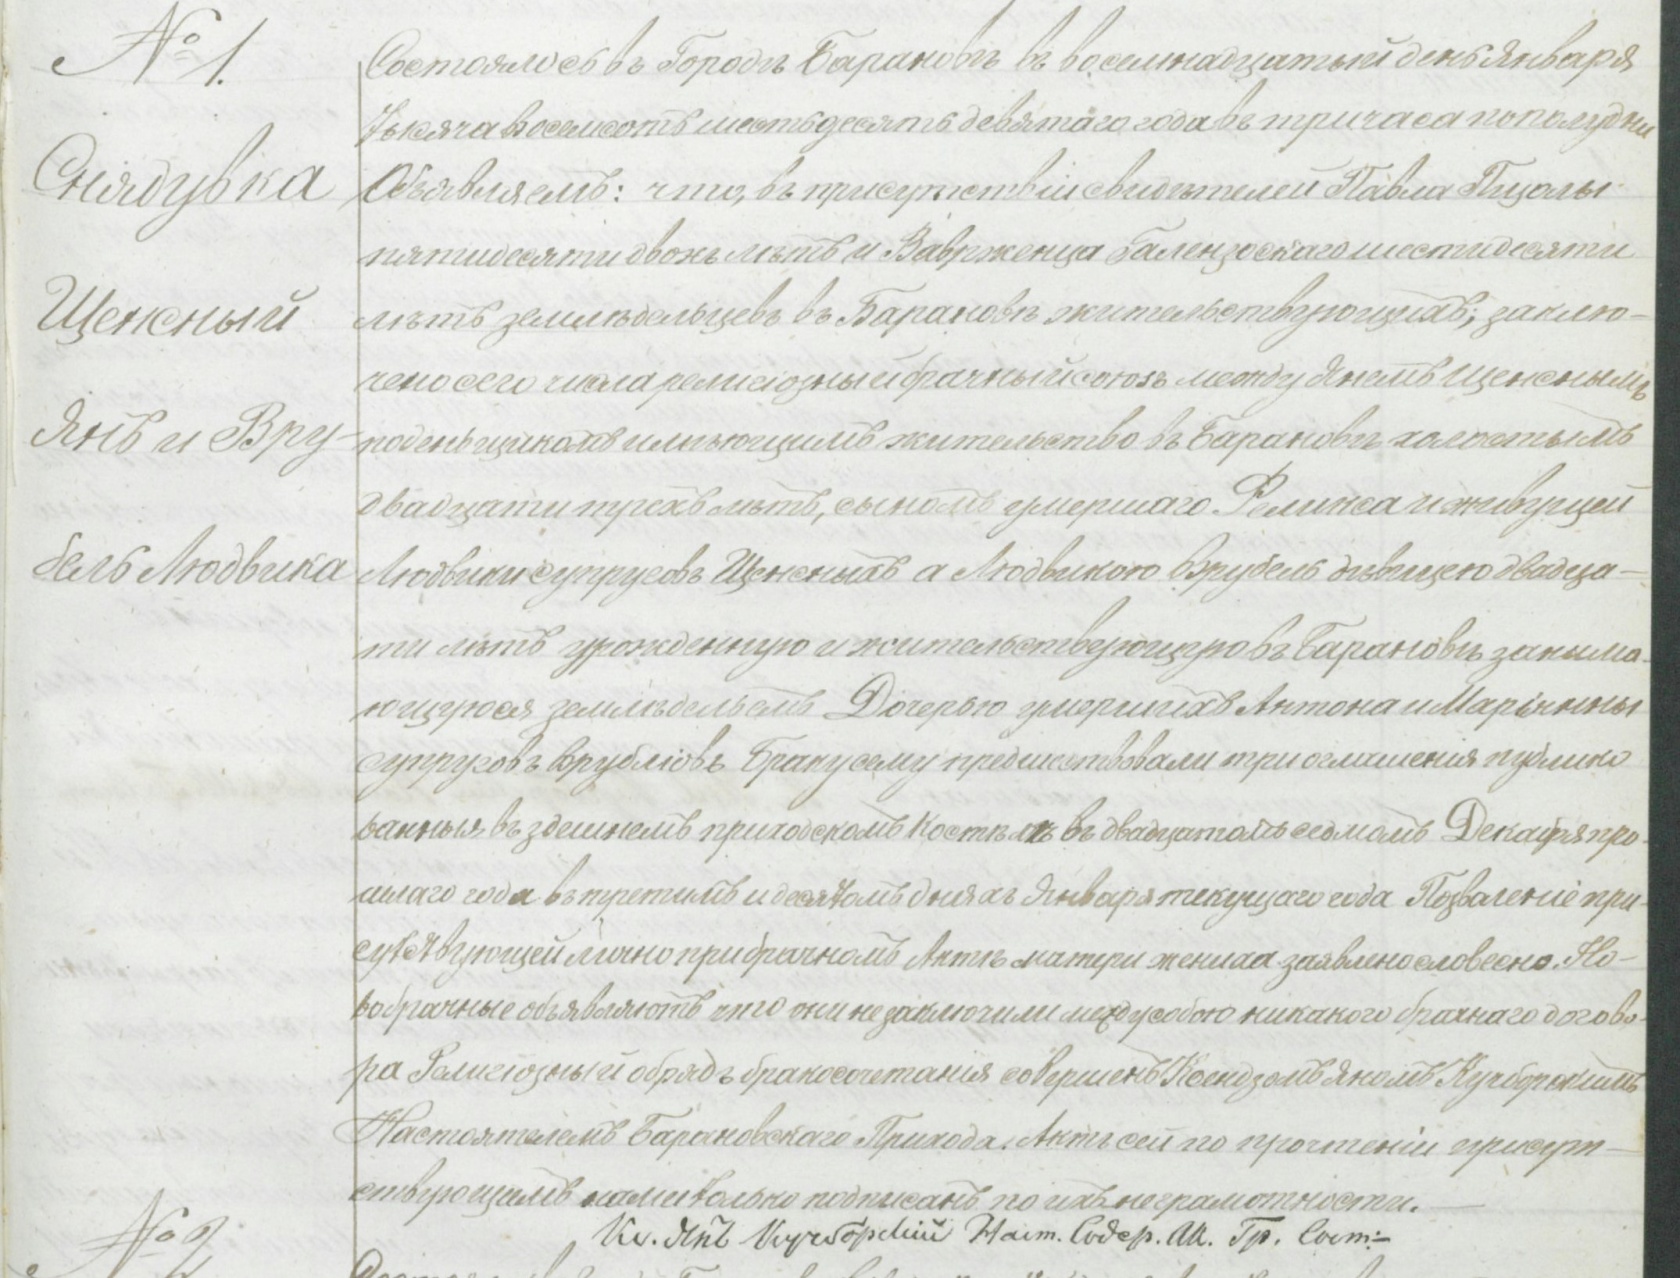 № 1.
Снядувка
Щенсный
Янъ и Вру-
бель Людвика
Состоялось въ Городѣ Барановѣ въ восемнадцатый день Января
тысяча восемсотъ шестьдесятъ девятаго года въ три часа пополудни
Объявляемъ: что, въ присутствіи свидѣтелей Павла Пщолы
пятидесяти двохъ лѣтъ и Ваврженца Галензовскаго шестидесяти
лѣтъ земледѣльцевъ въ Барановѣ жительствующихъ; заклю-
чено сего числа религіозный брачный союзъ между Янемъ Щенснымъ
поденьщикомъ имѣющимъ жительство въ Барановѣ холостымъ
двадцати трехъ лѣтъ, сыномъ умершаго Феликса и живущей
Людвики супруговъ Щенсныхъ а Людвикою Врубель дѣвицею двадца-
ти лѣтъ урожденную и жительствующую въ Барановѣ занима-
ющуюся земледѣльемъ Дочерью умершихъ Антона и Маріянны
супруговъ Врублювъ Браку сему предшествовали три оглашенія публико
ванныя въ здешнемъ приходскомъ Костелѣ въ двадцатомъ седмомъ Декабря про-
шлаго года въ третимъ и десятомъ дняхъ Января текущаго года Позваленіе при-
сутствующей лично при брачномъ Актѣ матери жениха заявлено словесно. Но-
вобрачные объявляютъ что они не заключили между собою никакого брачнаго догово-
ра Религіозный обрядъ бракосочетанія совершенъ Ксендзомъ Яномъ Кучборскимъ
Настоятелемъ Барановскаго Прихода. Актъ сей по прочтеніи присут-
ствующимъ нами только подписанъ по ихъ неграмотности.
Кс. Янъ Кучборскій Наст. Содер. Ак. Гр. Сост:-
№ 2